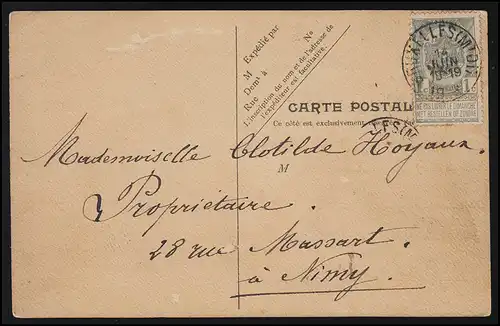 Expédié par
M
N°
Demt à
Rue
L'inscription du nom et de l'adresse de
l'expéditeur est facultative.
BRUXELLES (MIDI)
JUIN
19
1
NE PAS LIVRER LE DIMANCHE
NIET BESTELLEN OP ZONDAG
CARTE POSTAL
Ce côté est exclusivement
Mademoiselle Clotilde Hoyaux
M
Propriétaire.
28 rue Massart.
à Nimy.